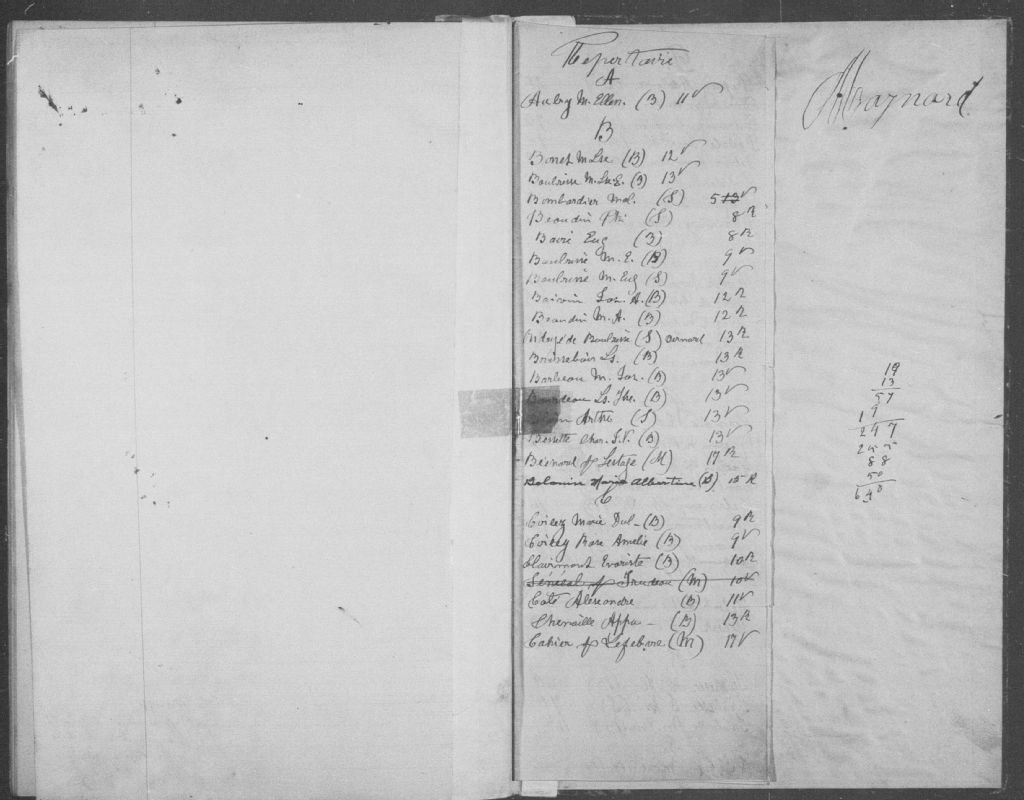 Repertoire
A
Aubry M. Ellen. (B) 11 v
B
M. Lse (B) 12 v
Boulrisse M. Ls E. (B) 13 v
Bombardier Mel. (S) 5 v
Beaudin Phi (S) 8 R
Eug (B) 8 R
Boulrisse M. E. (B) 9 v
Boulrisse M. Eug (S) 9 v
Boivin Jos. A. (B) 12 R
Beaudin M. A. (B) 12 R
de Boulrisse (S) Bernard 13 R
Ls. (B) 13 R
Barbeau M. Jos. (B) 13 v
Bourdeau Ls. The. (B) 13 v
Artho (S) 13 v
Bessette Char. J. V. (B) 13 v
Besnard & Lestage (M) 17 R
Marie Albertine (B) 15 R
C
Marie Del- (B) 9 R
Rose Amelie (B) 9 v
Clairmont Evariste (B) 10 R
Sénécal & Trudeau (M) 10 v
Coté Alexandre (B) 11 v
Chenaille Appa - (B) 13 R
Cahier & Lefebvre (M) 17 v
Maynard
19
13
57
19
247
88
50
640